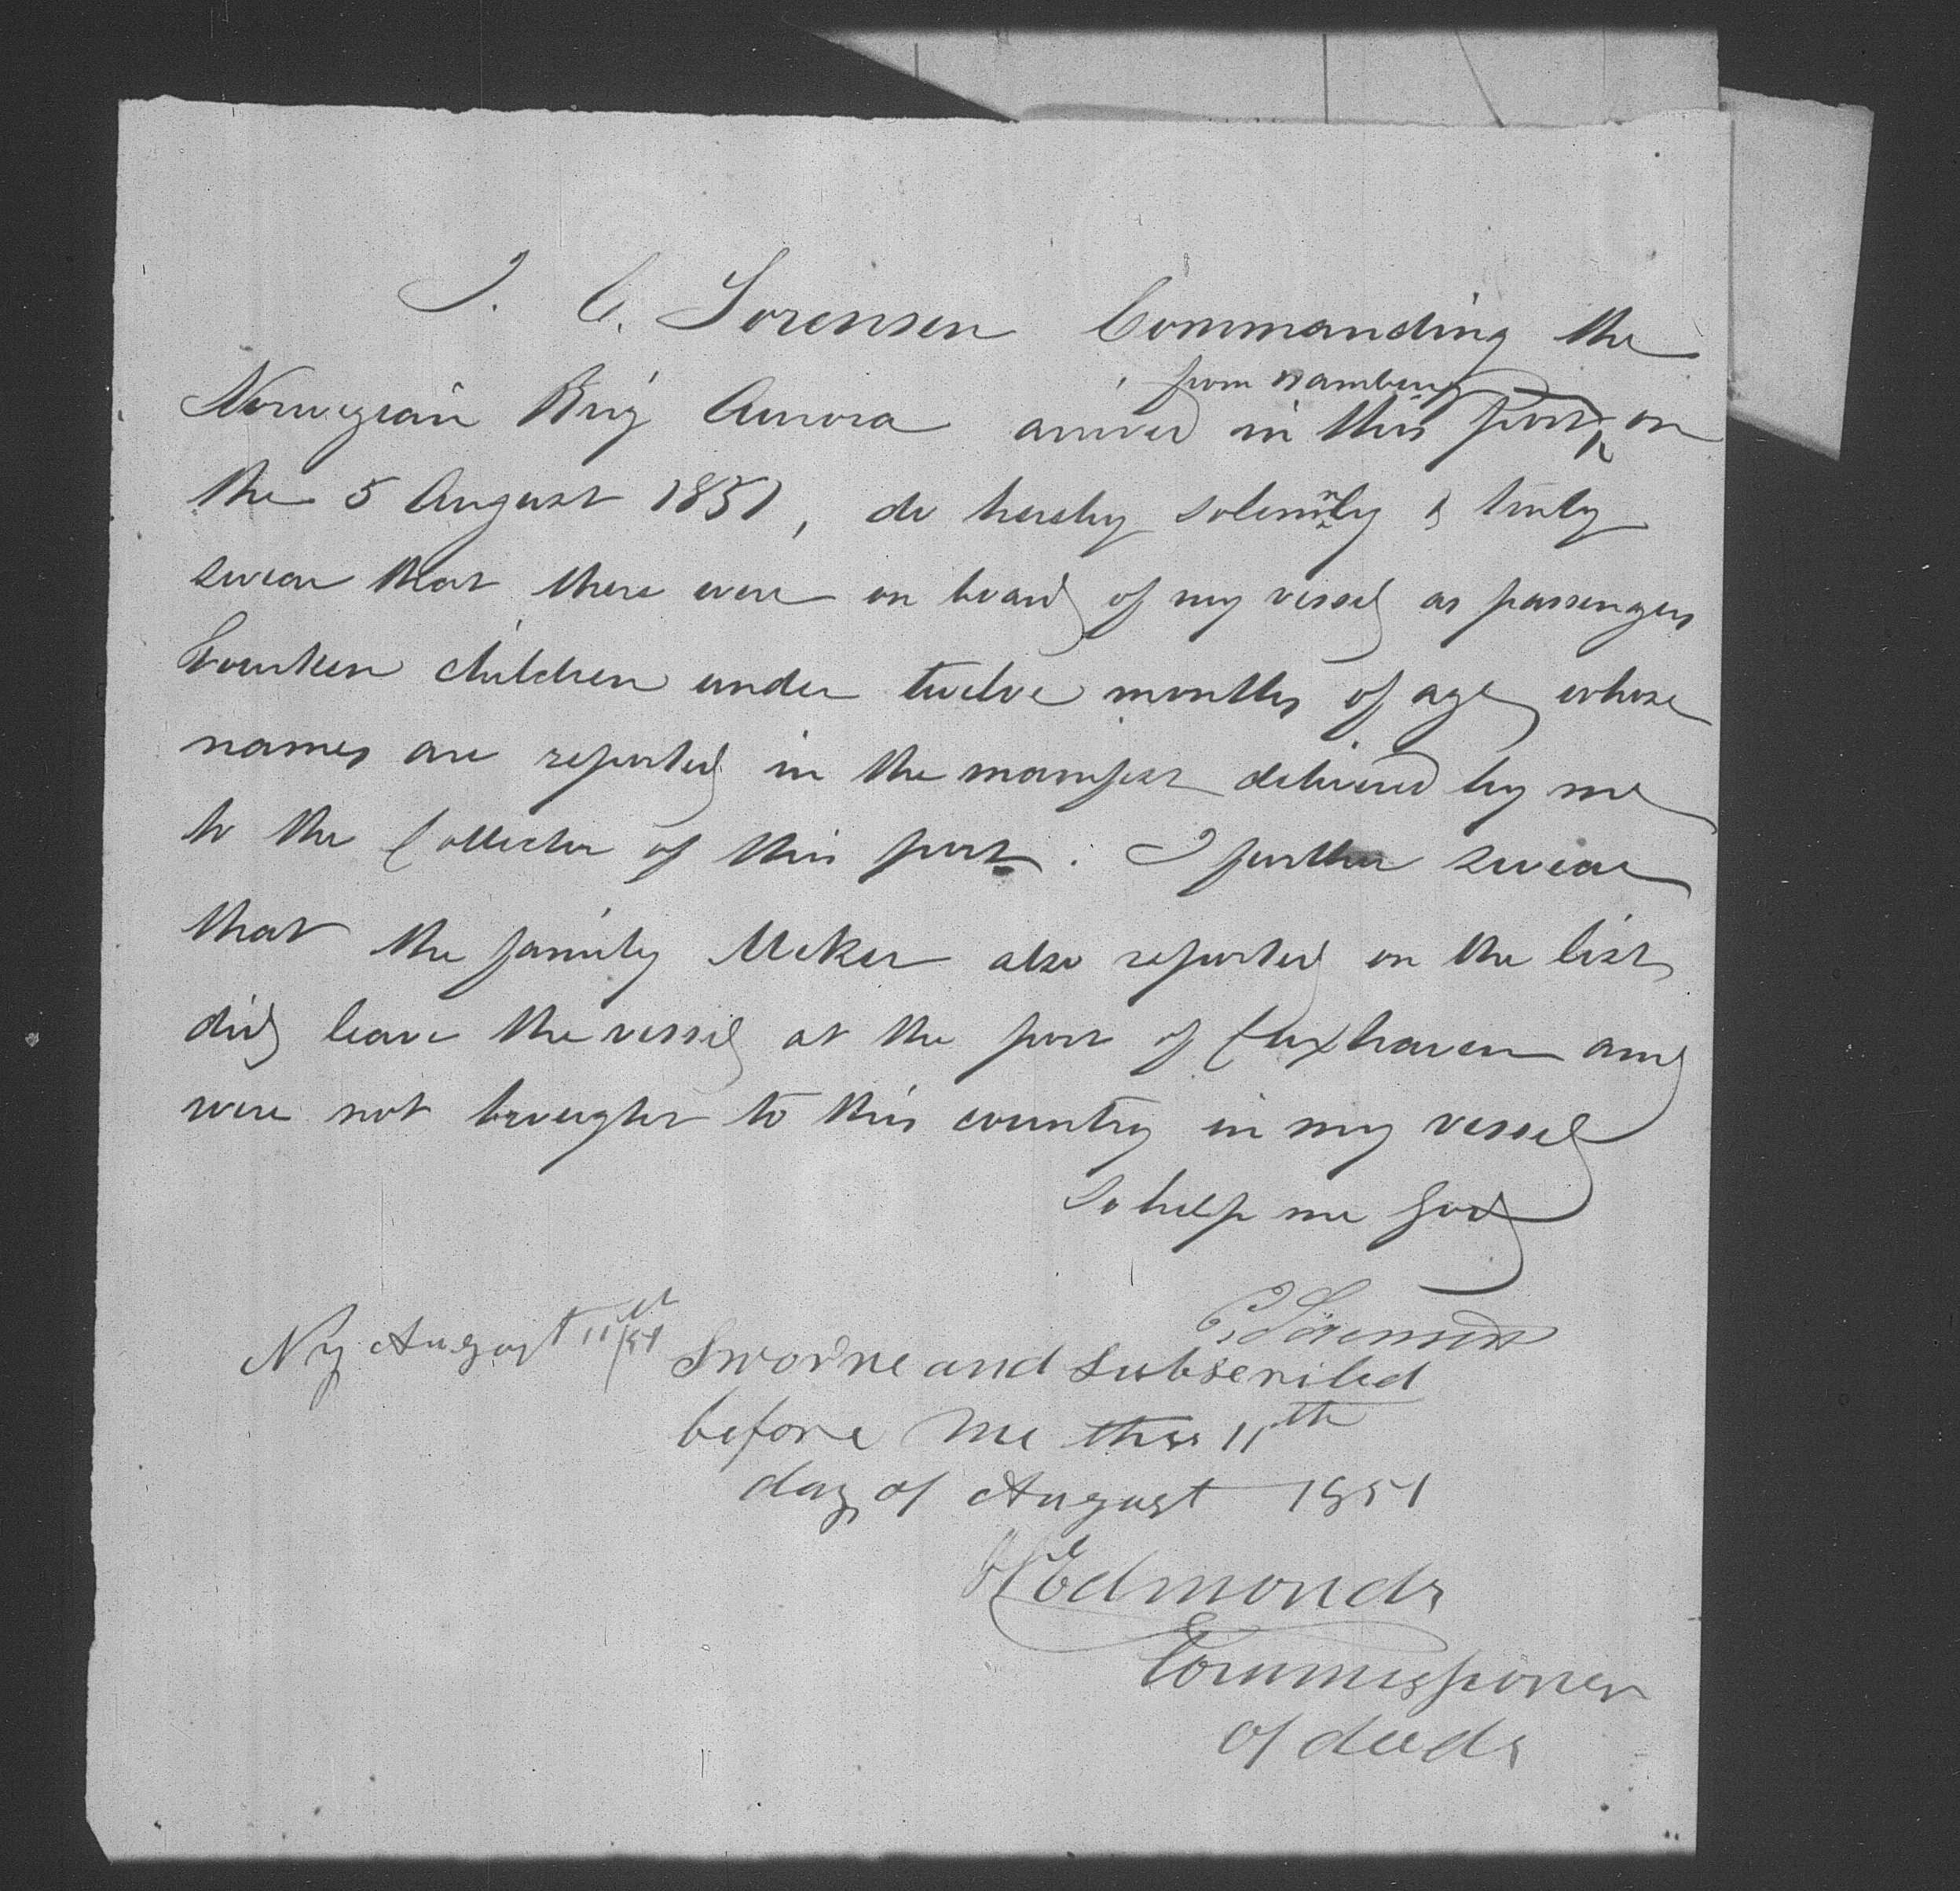 I. C. Sorensen Commanding the
from Hamburg
Norwegian Brig Aurora arrived in this port on
the 5 August 1851, do hereby solemnly & truly
swear that there were on board of my vessel as passengers
Fourteen children under twelve months of age whose
names are reported in the manifest delivered by me
to the Collector of this port. I further swear
that the family Meker also reported on the list
did leave the vessel at the port of Cuxhaven and
were not brought to this country in my vessel
So help me God
C. Sörensen
Ny August 11th/51
Sworne and Subscribed
before me this 11th
day of August 1851
Edmonds
Commissioner
of deeds